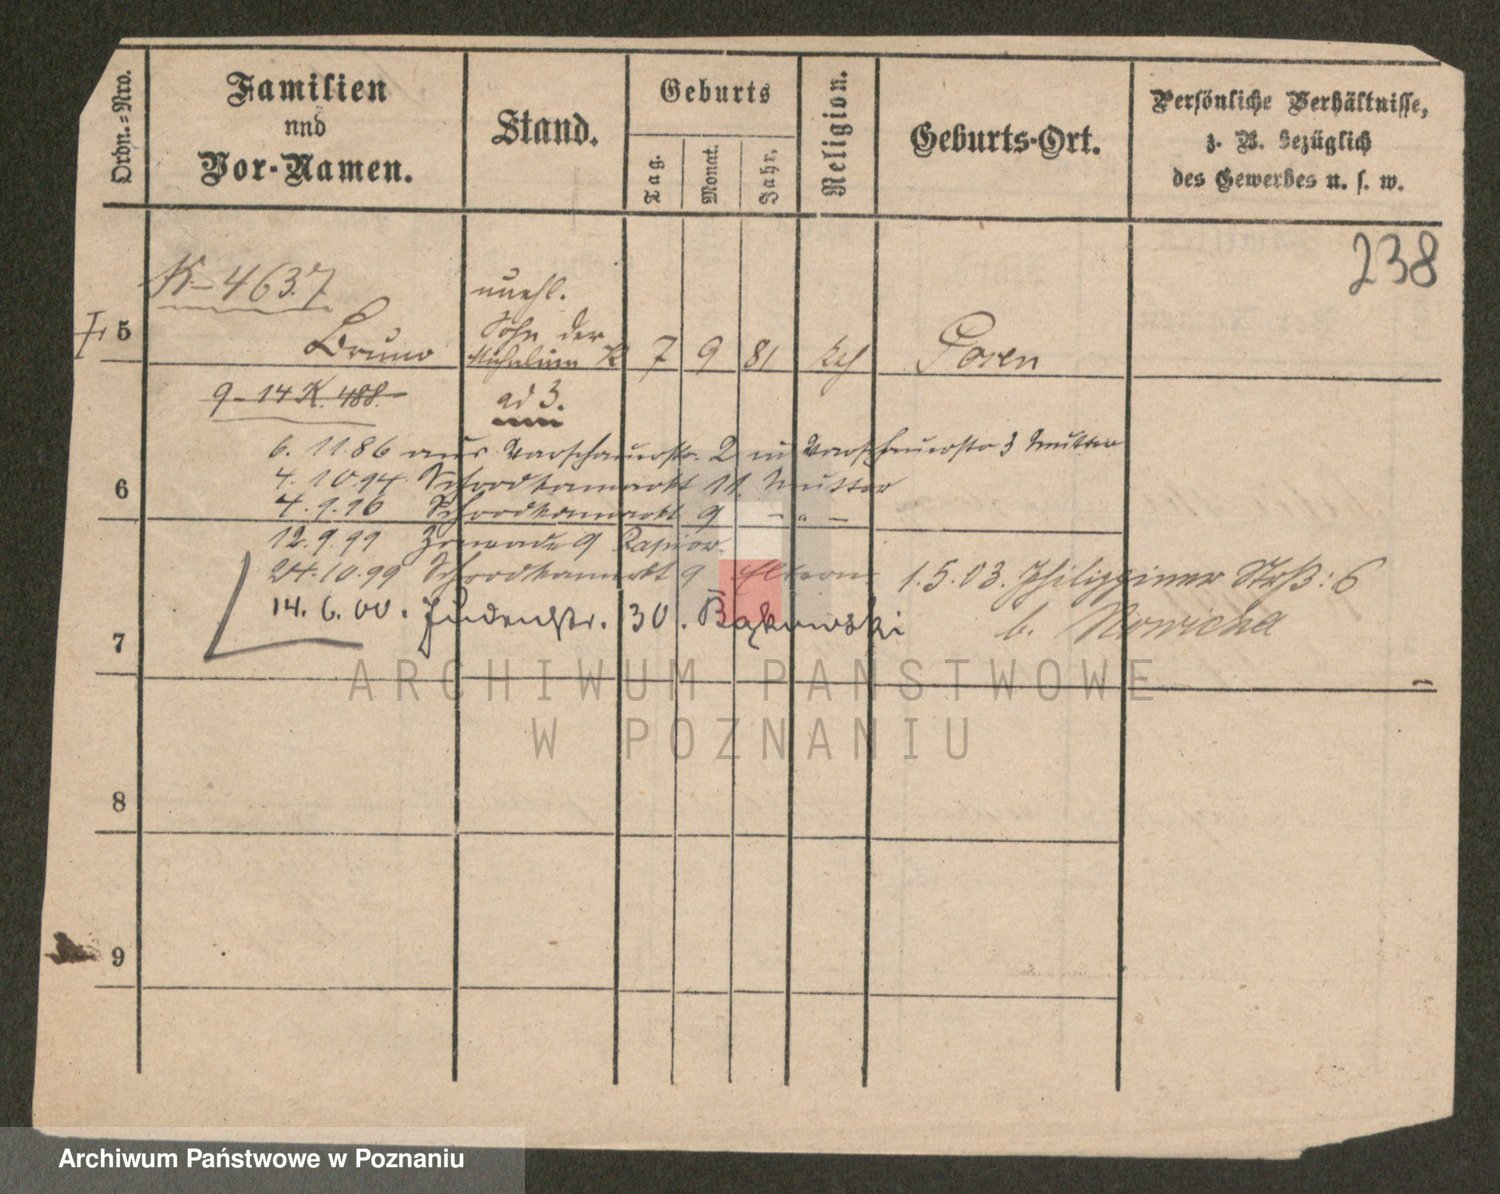 Ordn.-Nro.
Familien
und
Vor-Namen.
Stand.
Geburts
Tag.
Monat.
Jahr.
Religion.
Geburts-Ort.
Persönliche Verhältnisse,
z. B. bezüglich
des Gewerbes u. s. w.
238
K-4637
unehl.
5
Bruno
Sohn der
K
7
9
81
Posen
9-14 K. 488.
ad 3.
6. 11.86 aus 2 in 3 Mutter
6
4. 10.94. 11. Mutter
4. 9. 96 9 - " -
12. 9. 99 9
24. 10. 99 9 Eltern
1. 5. 03. Philippinen Strß: 6
14. 6. 00. Judenstr. 30. Bąkowski
b. Nowicka
7
ARCHIWUM PAŃSTWOWE
W POZNANIU
8
9
Archiwum Państwowe w Poznaniu